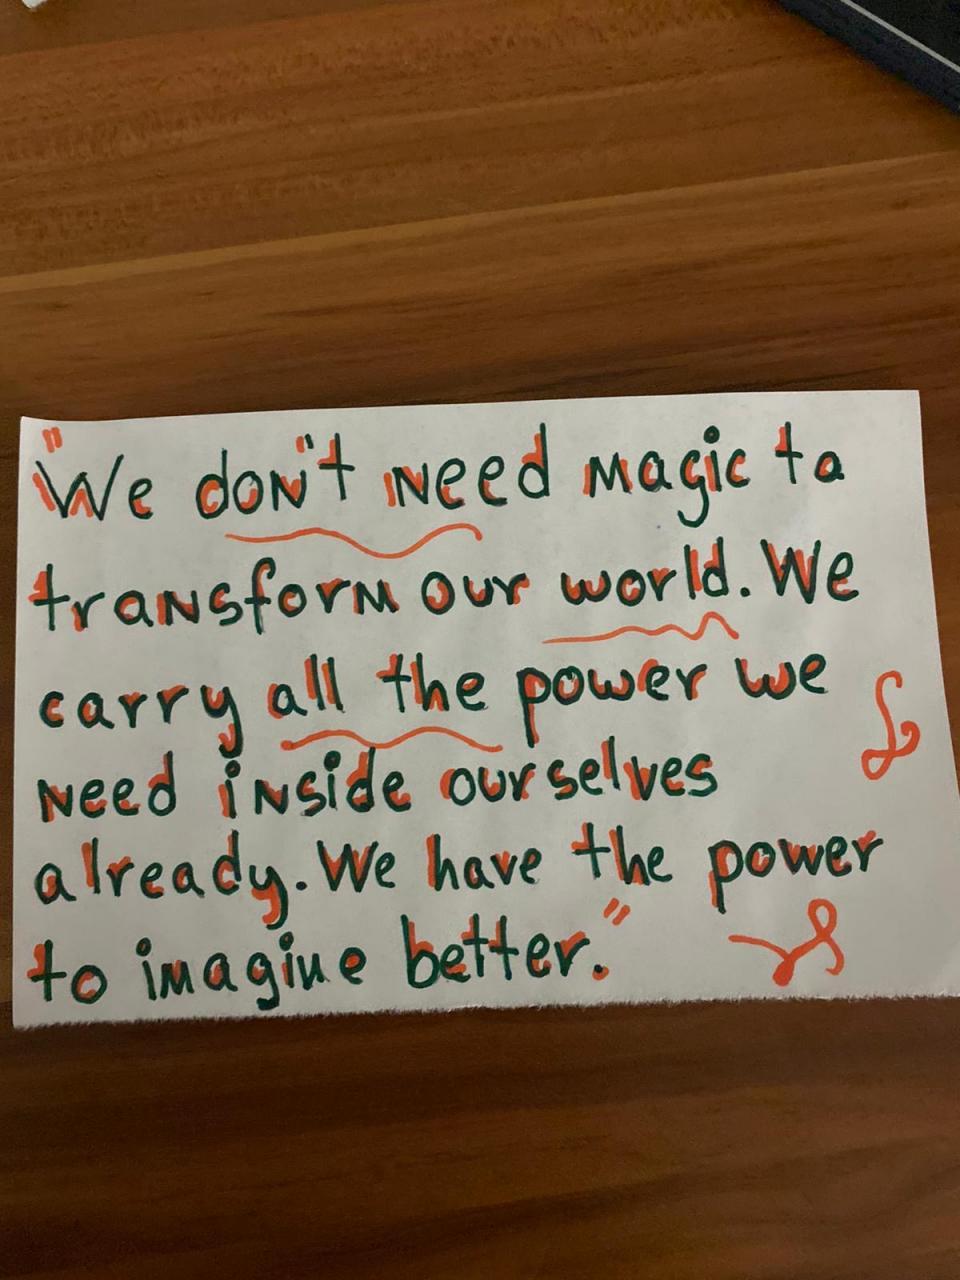 "We don't need magic to
transform our world. We
carry all the power we
need inside ourselves
already. We have the power
to imagine better."